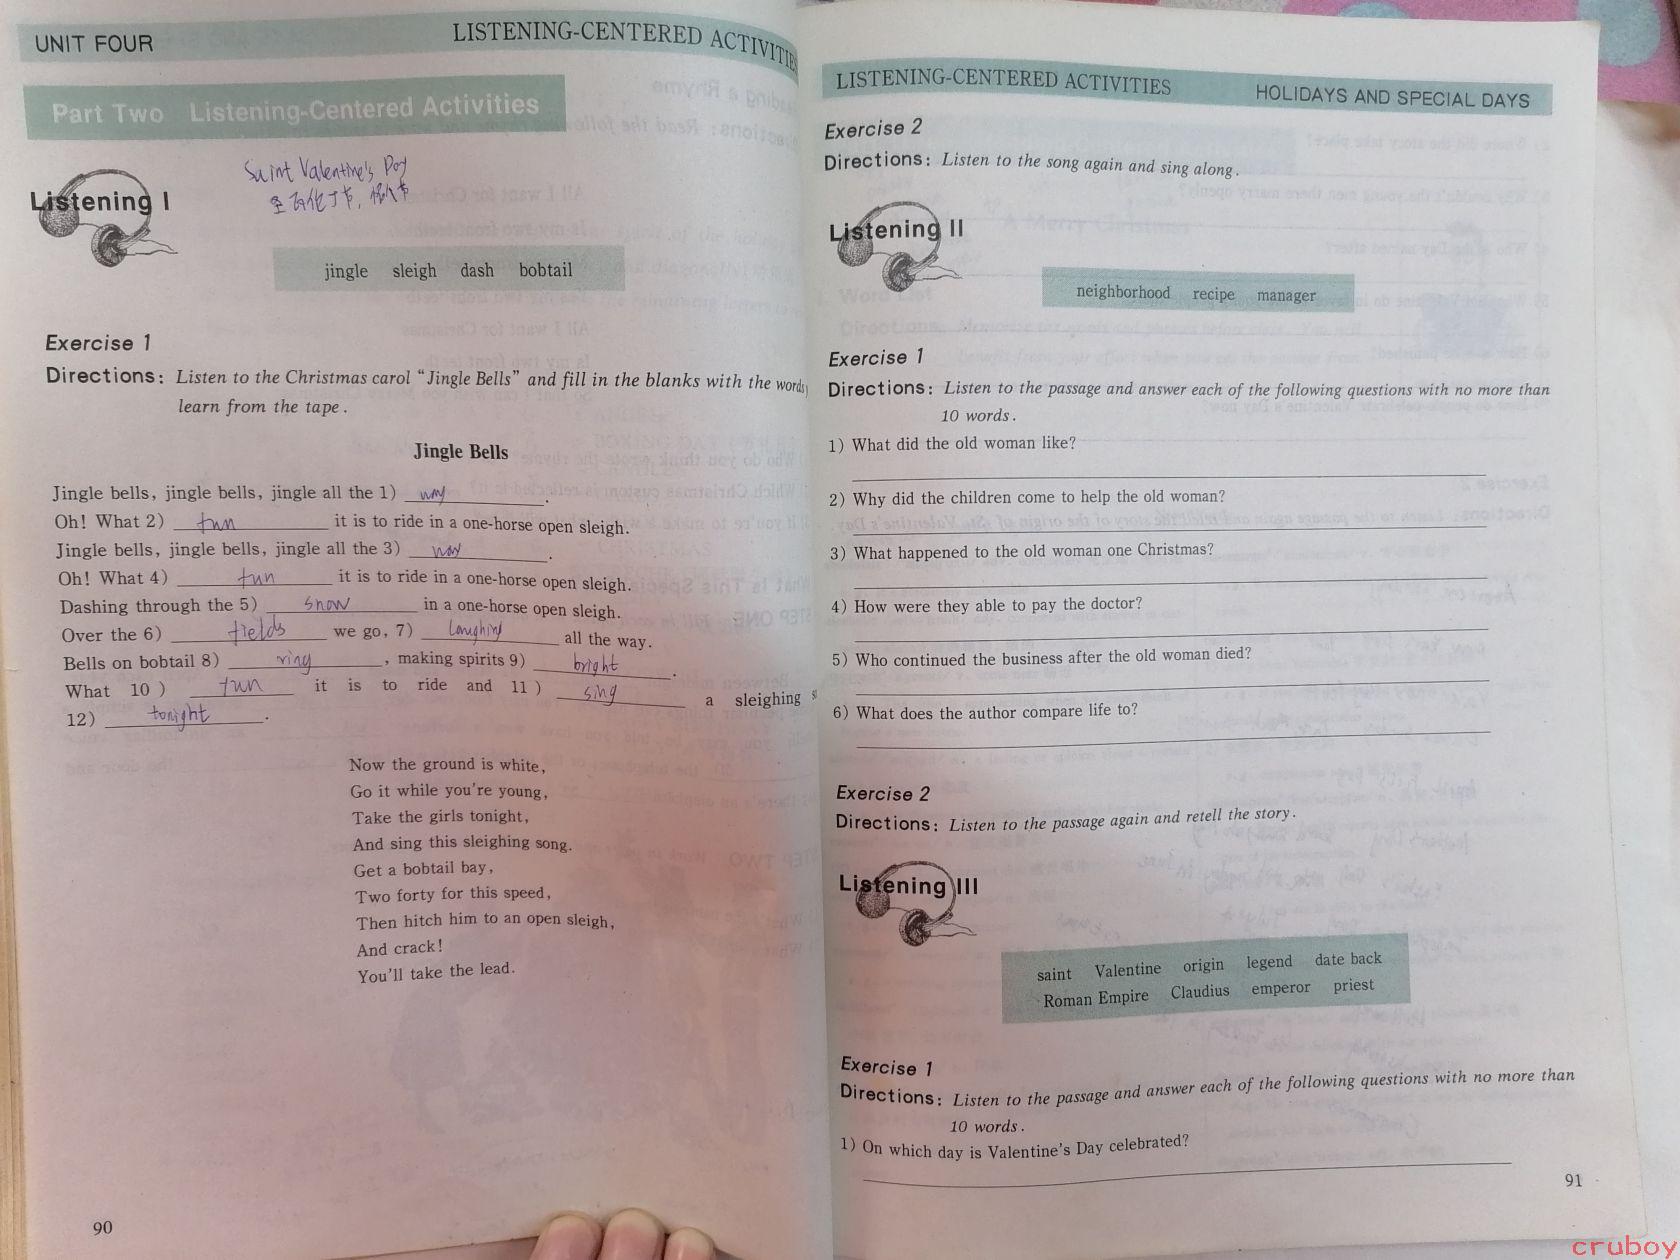 UNIT FOUR
LISTENING-CENTERED ACTIVITIE
Part Two Listening-Centered Activities
Saint Valentine's Day
Listening I
jingle sleigh dash bobtail
Exercise 1
Directions: Listen to the Christmas carol "Jingle Bells" and fill in the blanks with the words
learn from the tape.
Jingle Bells
Jingle bells, jingle bells, jingle all the 1) way.
Oh! What 2) fun it is to ride in a one-horse open sleigh.
Jingle bells, jingle bells, jingle all the 3) way.
Oh! What 4) fun it is to ride in a one-horse open sleigh.
Dashing through the 5) snow in a one-horse open sleigh.
Over the 6) fields we go, 7) laughing all the way.
Bells on bobtail 8) ring, making spirits 9) bright.
What 10) fun it is to ride and 11) sing a sleighing s
12) tonight.
Now the ground is white,
Go it while you're young,
Take the girls tonight,
And sing this sleighing song.
Get a bobtail bay,
Two forty for this speed,
Then hitch him to an open sleigh,
And crack!
You'll take the lead.
90
LISTENING-CENTERED ACTIVITIES HOLIDAYS AND SPECIAL DAYS
Exercise 2
Directions: Listen to the song again and sing along.
Listening II
neighborhood recipe manager
Exercise 1
Directions: Listen to the passage and answer each of the following questions with no more than
10 words.
1) What did the old woman like?
2) Why did the children come to help the old woman?
3) What happened to the old woman one Christmas?
4) How were they able to pay the doctor?
5) Who continued the business after the old woman died?
6) What does the author compare life to?
Exercise 2
Directions: Listen to the passage again and retell the story.
Listening III
saint Valentine origin legend date back
Roman Empire Claudius emperor priest
Exercise 1
Directions: Listen to the passage and answer each of the following questions with no more than
10 words.
1) On which day is Valentine's Day celebrated?
91
cruboy